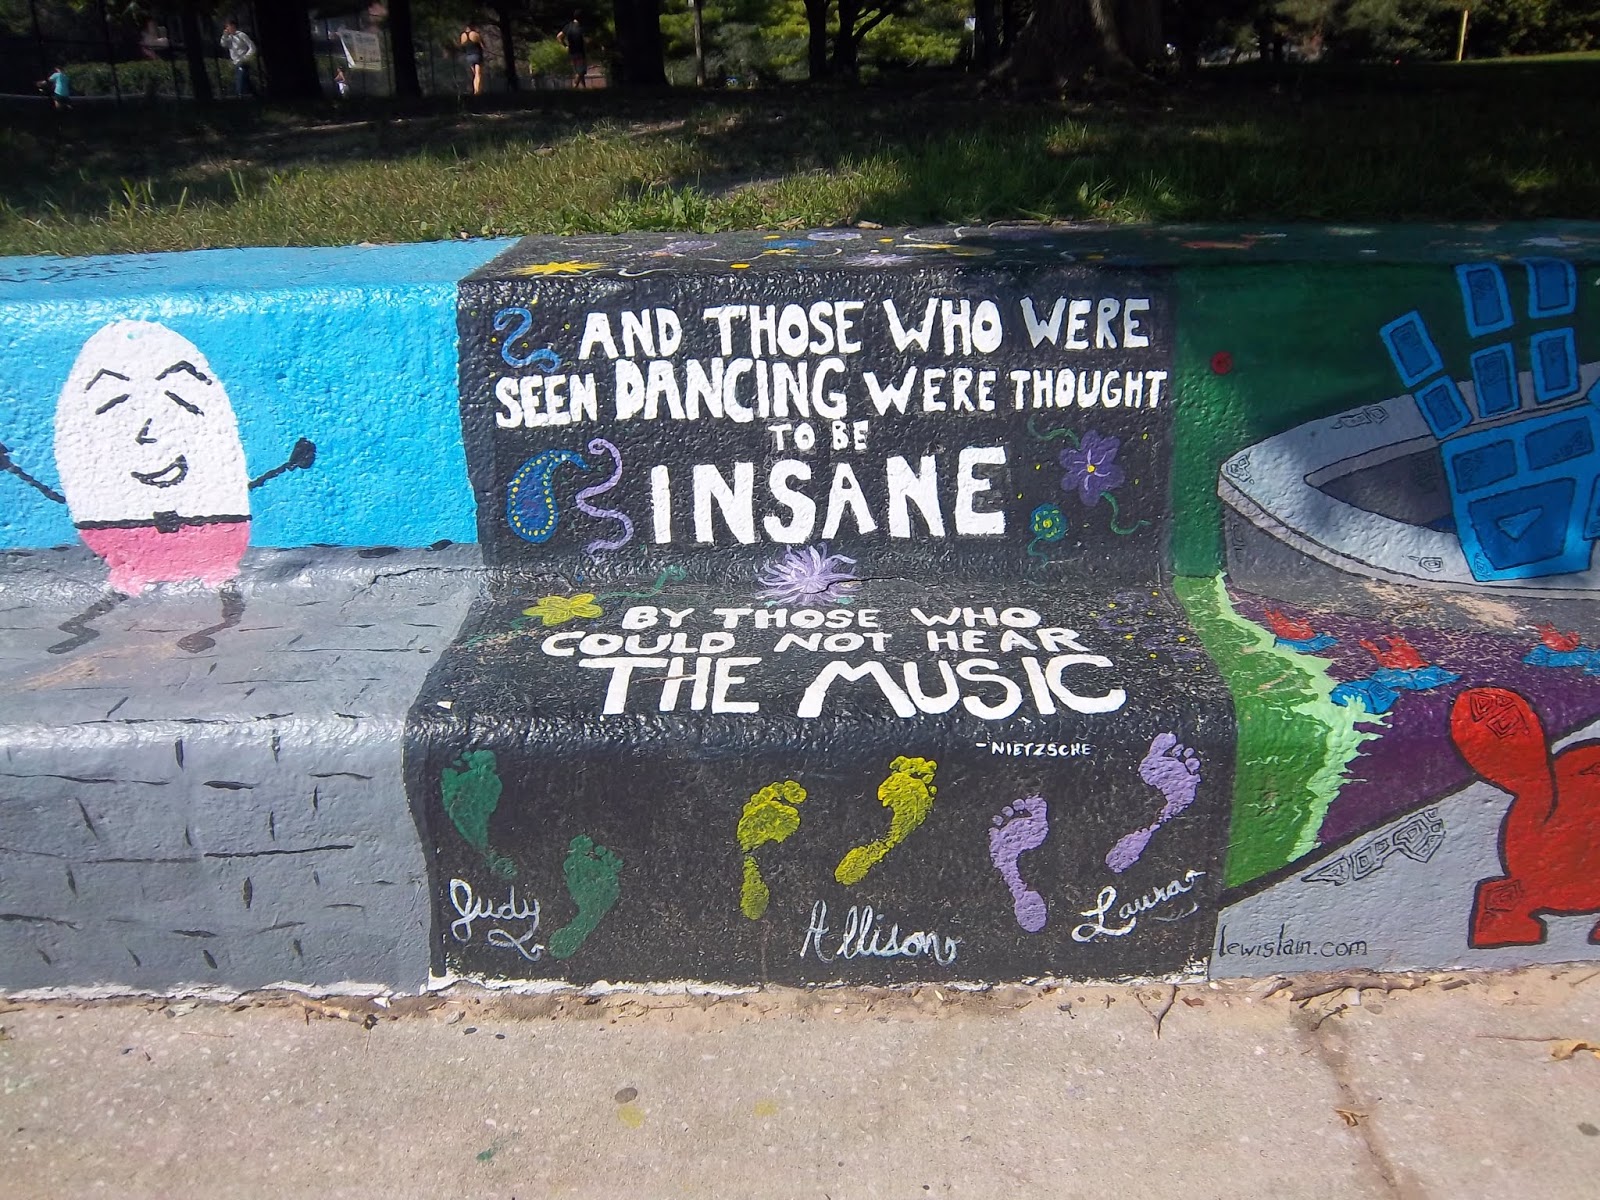 AND THOSE WHO WERE
SEEN DANCING WERE THOUGHT
TO BE
INSANE
BY THOSE WHO
COULD NOT HEAR
THE MUSIC
-NIETZSCHE
Judy
Allison
Laura
lewislain.com